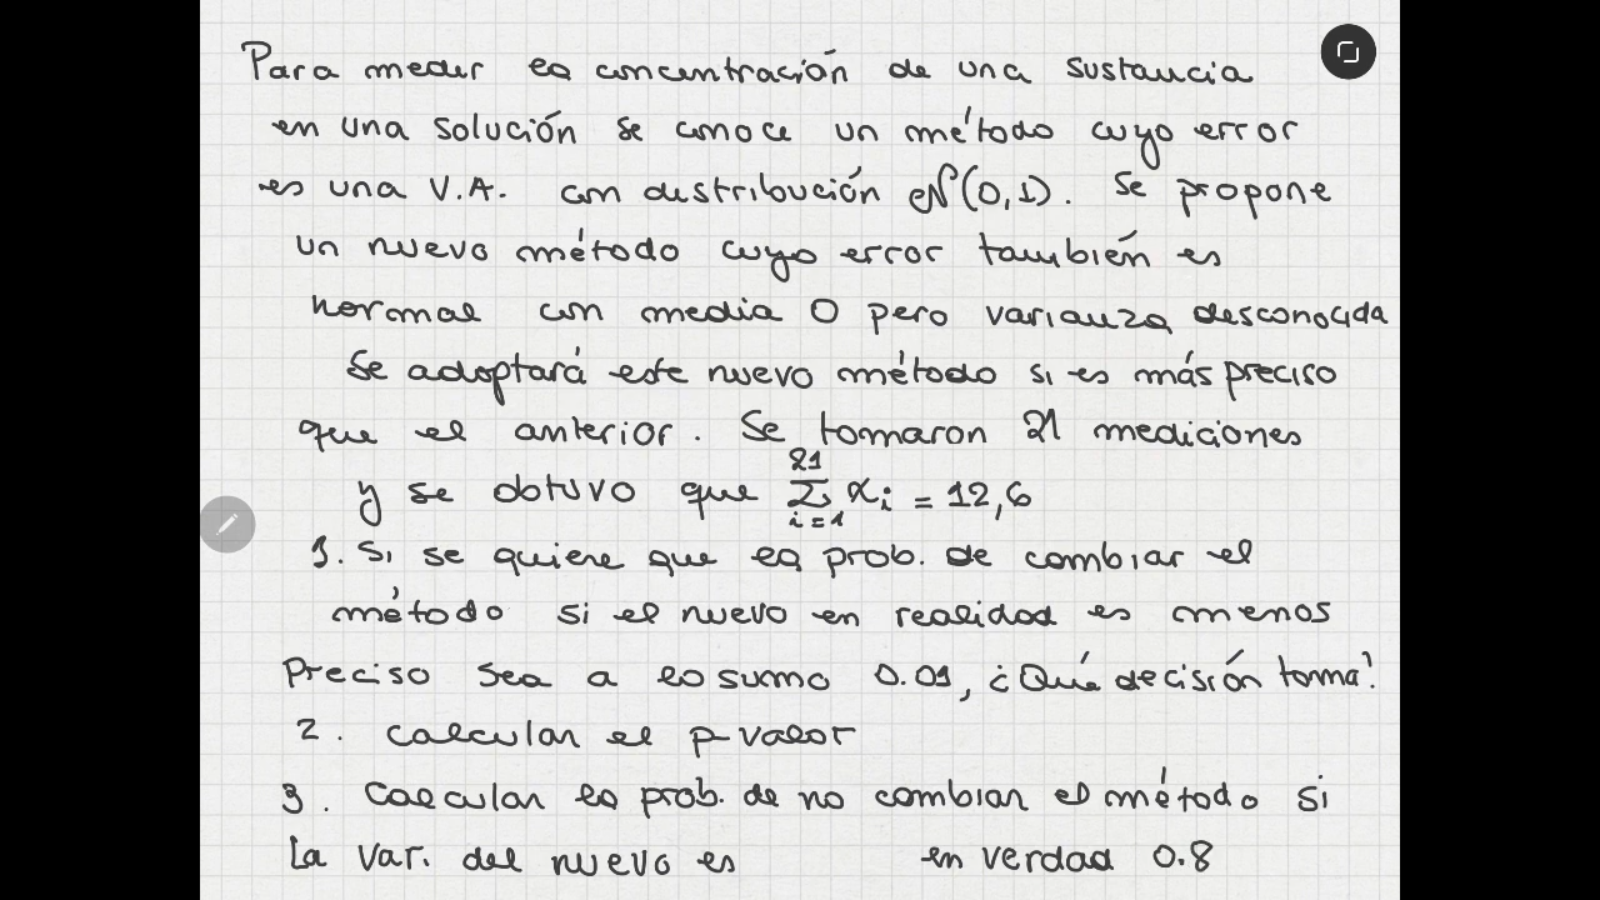 Para medir la concentración de una sustancia
en una solución se conoce un método cuyo error
es una V.A. con distribución N(0,1). Se propone
un nuevo método cuyo error también es
normal con media 0 pero varianza desconocida
Se adoptará este nuevo método si es más preciso
que el anterior. Se tomaron 21 mediciones
y se obtuvo que \sum_{i=1}^{21} x_i = 12,6
1. Si se quiere que la prob. de cambiar el
método si el nuevo en realidad es menos
preciso sea a lo sumo 0.01, ¿Qué decisión toma?
2. Calcular el p-valor
3. Calcular la prob. de no cambiar el método si
La var. del nuevo es en verdad 0.8